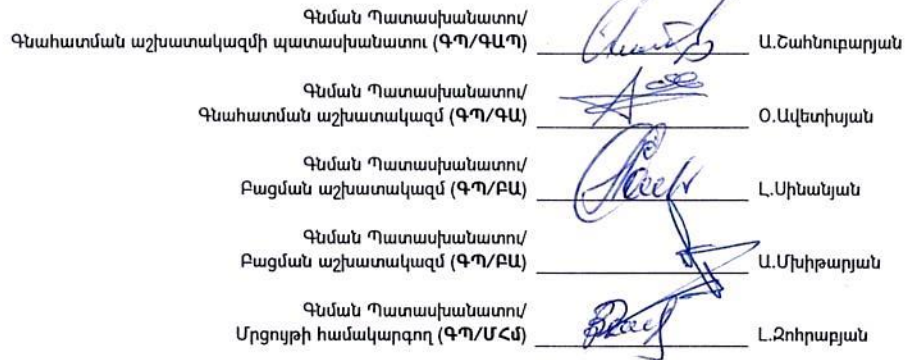 Գնման Պատասխանատու/
Գնահատման աշխատակազմի պատասխանատու (ԳՊ/ԳԱՊ) Ա.Շահնուբարյան
Գնման Պատասխանատու/
Գնահատման աշխատակազմ (ԳՊ/ԳԱ) Օ.Ավետիսյան
Գնման Պատասխանատու/
Բացման աշխատակազմ (ԳՊ/ԲԱ) Լ.Սինանյան
Գնման Պատասխանատու/
Բացման աշխատակազմ (ԳՊ/ԲԱ) Ա.Մխիթարյան
Գնման Պատասխանատու/
Մրցույթի համակարգող (ԳՊ/ՄՀմ) Լ.Զոհրաբյան